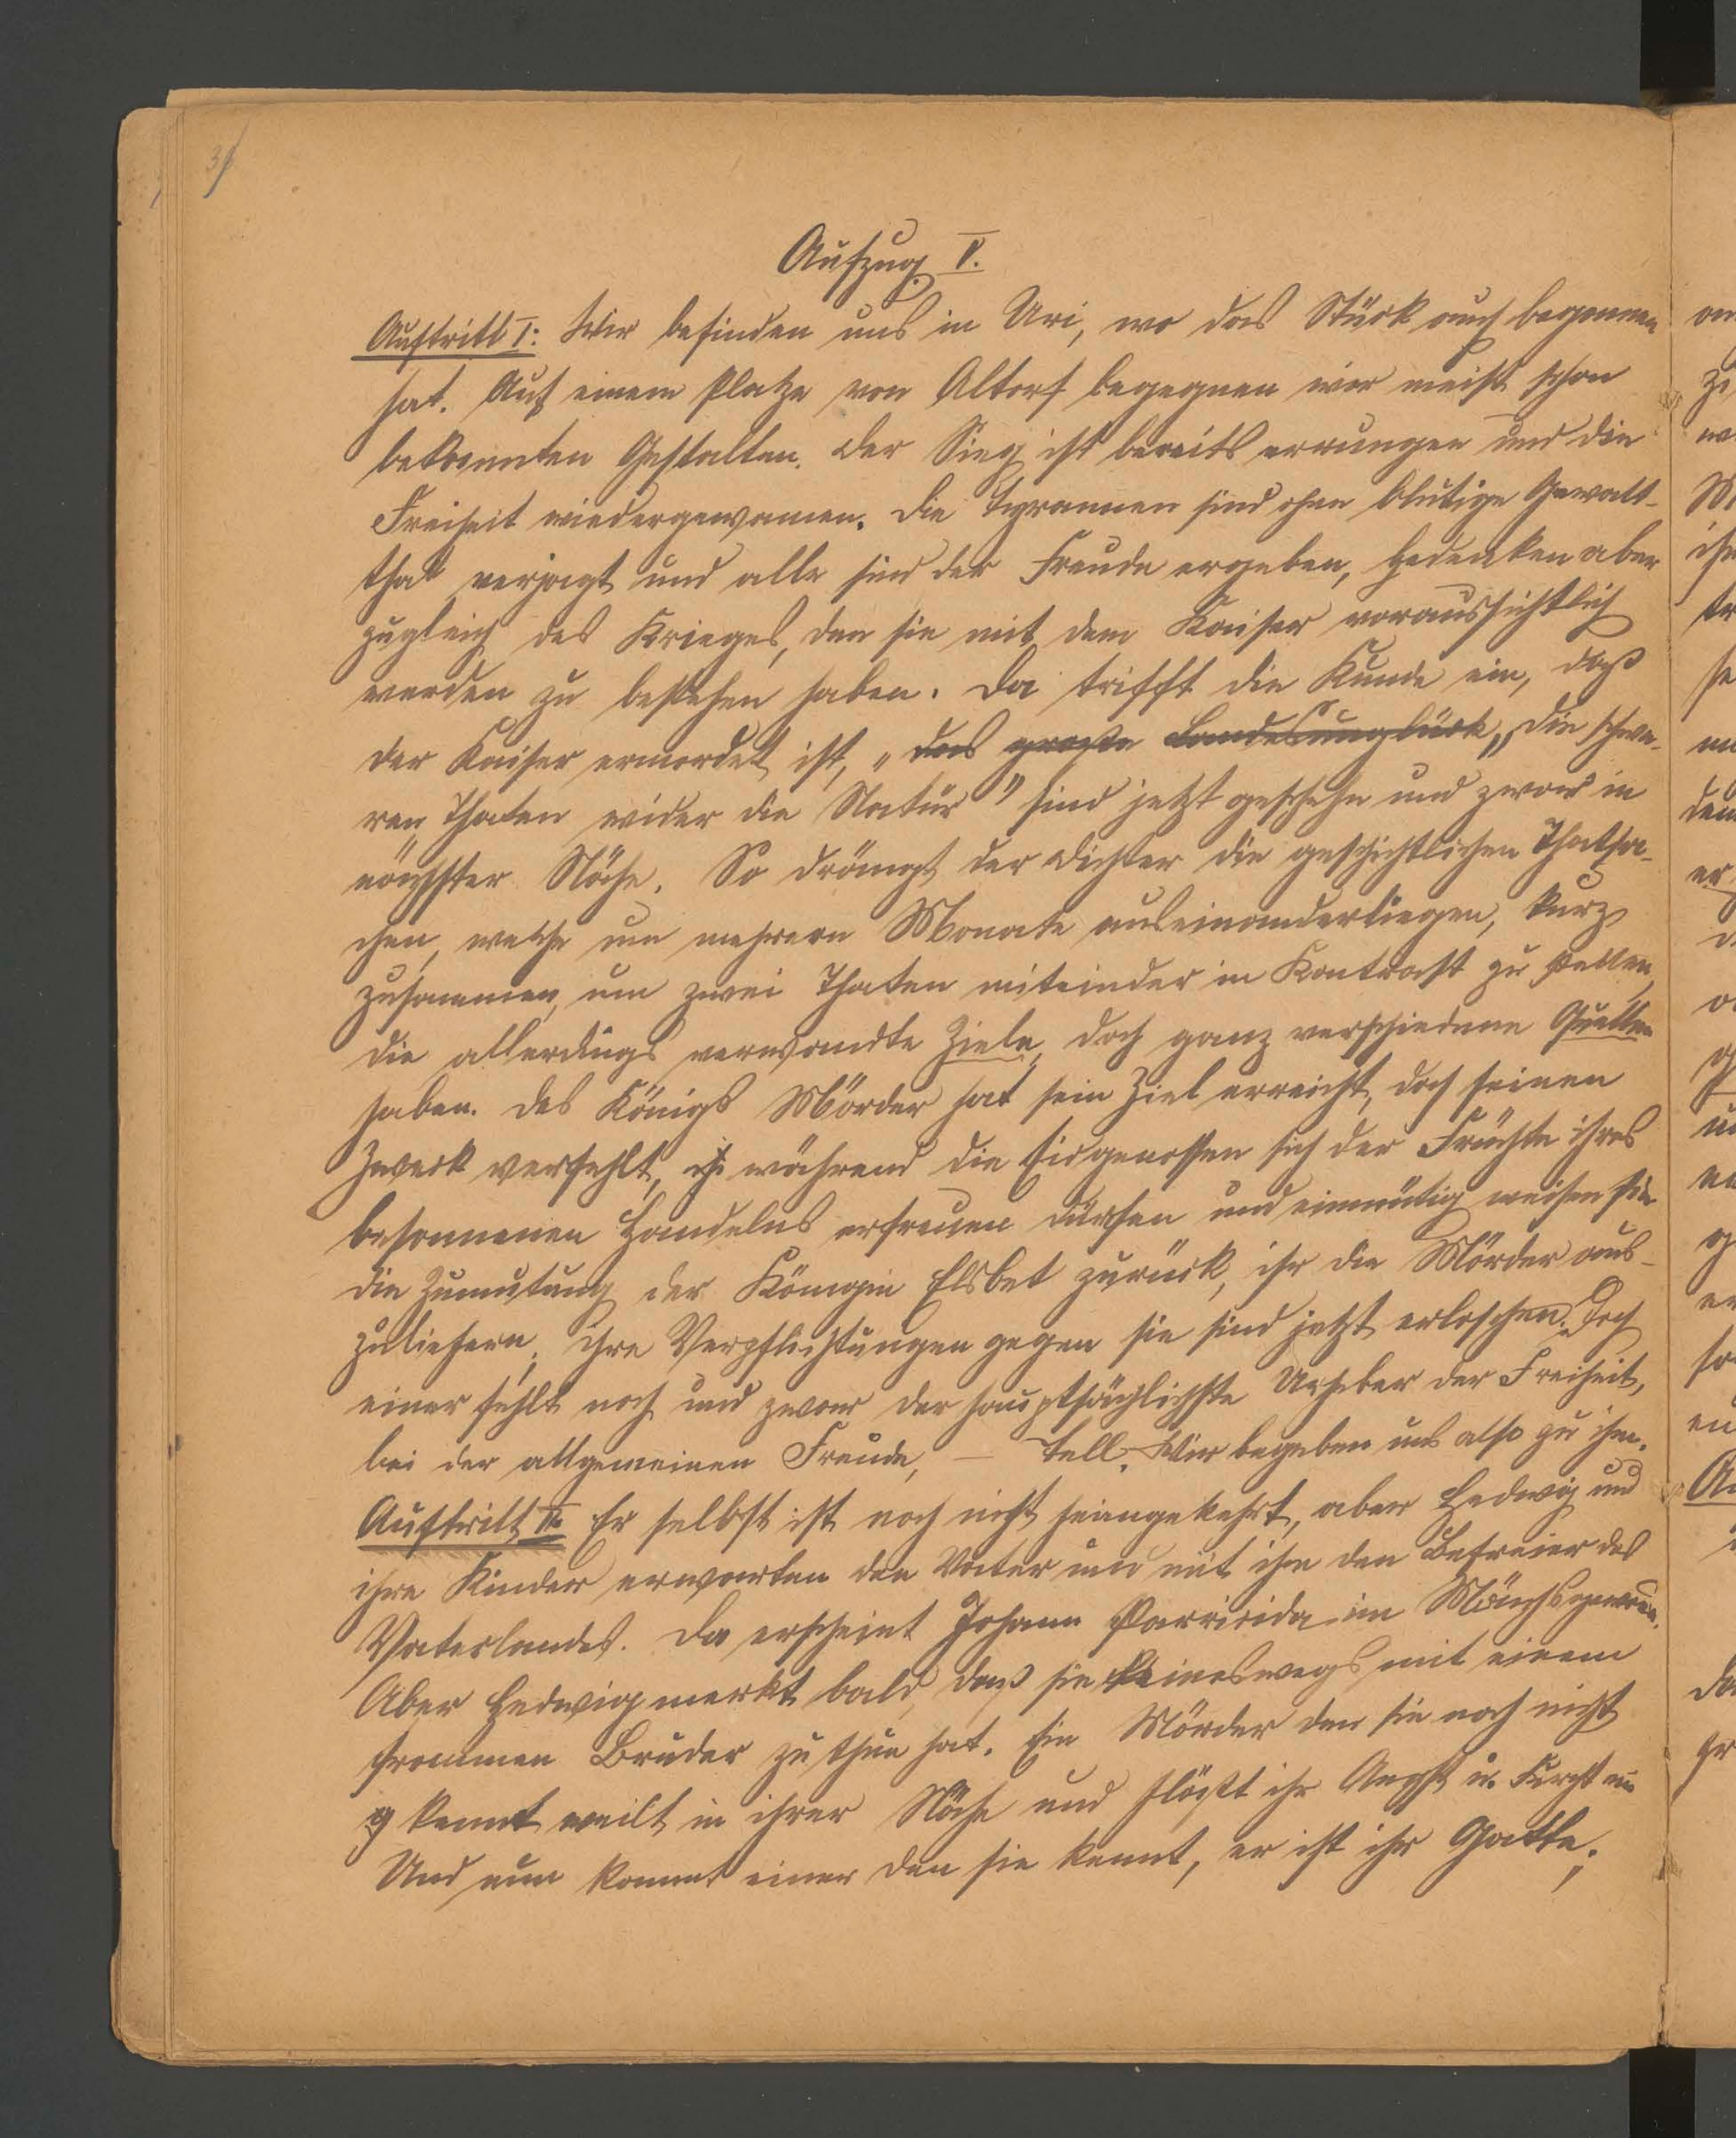 Aufzug V.
Auftritt I: Wir befinden uns in Uri, wo das Stück auch begonnen
hat. Auf einem Platze von Altorf begegnen wir meist schon
bekannten Gestalten. Der Sieg ist bereits errungen und die
Freiheit wiedergewonnen. Die Tyrannen sind ohne blutige Gewalt-
that verjagt und alle sind der Freude ergeben, gedenken aber
zugleich des Krieges, den sie mit dem Kaiser voraussichtlich
werden zu bestehen haben. Da trifft die Kunde ein, daß
der Kaiser ermordet ist, „das große Landesunglück, „die schwe-
ren Thaten wider die Natur" sind jetzt geschehn und zwar in
nächster Nähe. So drängt der Dichter die geschichtlichen Thatsa-
chen, welche um mehrere Monate auseinanderliegen, kurz
zusammen, um zwei Thaten miteinder in Kontrast zu stellen,
die allerdings verwandte Ziele, doch ganz verschiedene Quellen
haben. Des Königs Mörder hat sein Ziel erreicht, doch seinen
Zweck verfehlt, während die Eidgenossen sich der Früchte ihres
besonnenen Handelns erfreuen dürfen und einmütig weisen sie
die Zumutung der Königin Elsbet zurück, ihr die Mörder aus-
zuliefern; ihre Verpflichtungen gegen sie sind jetzt erloschen. Doch
einer fehlt noch und zwar der hauptsächlichste Urheber der Freiheit,
bei der allgemeinen Freude, – Tell. Wir begeben uns also zu ihm.
Auftritt II. Er selbst ist noch nicht heimgekehrt, aber Hedwig und
ihre Kinder erwarten den Vater und mit ihm den Befreier des
Vaterlandes. Da erscheint Johann Parricida im Mönchsgewan.
Aber Hedwig merkt bald, daß sie keineswegs mit einem
frommen Bruder zu thun hat. Ein Mörder den sie noch nicht
kennt weilt in ihrer Nähe und flößt ihr Angst u. Furcht ein
Und nun kommt einer den sie kennt, er ist ihr Gatte;